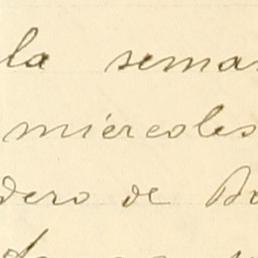 la sema
miércoles
dero de B